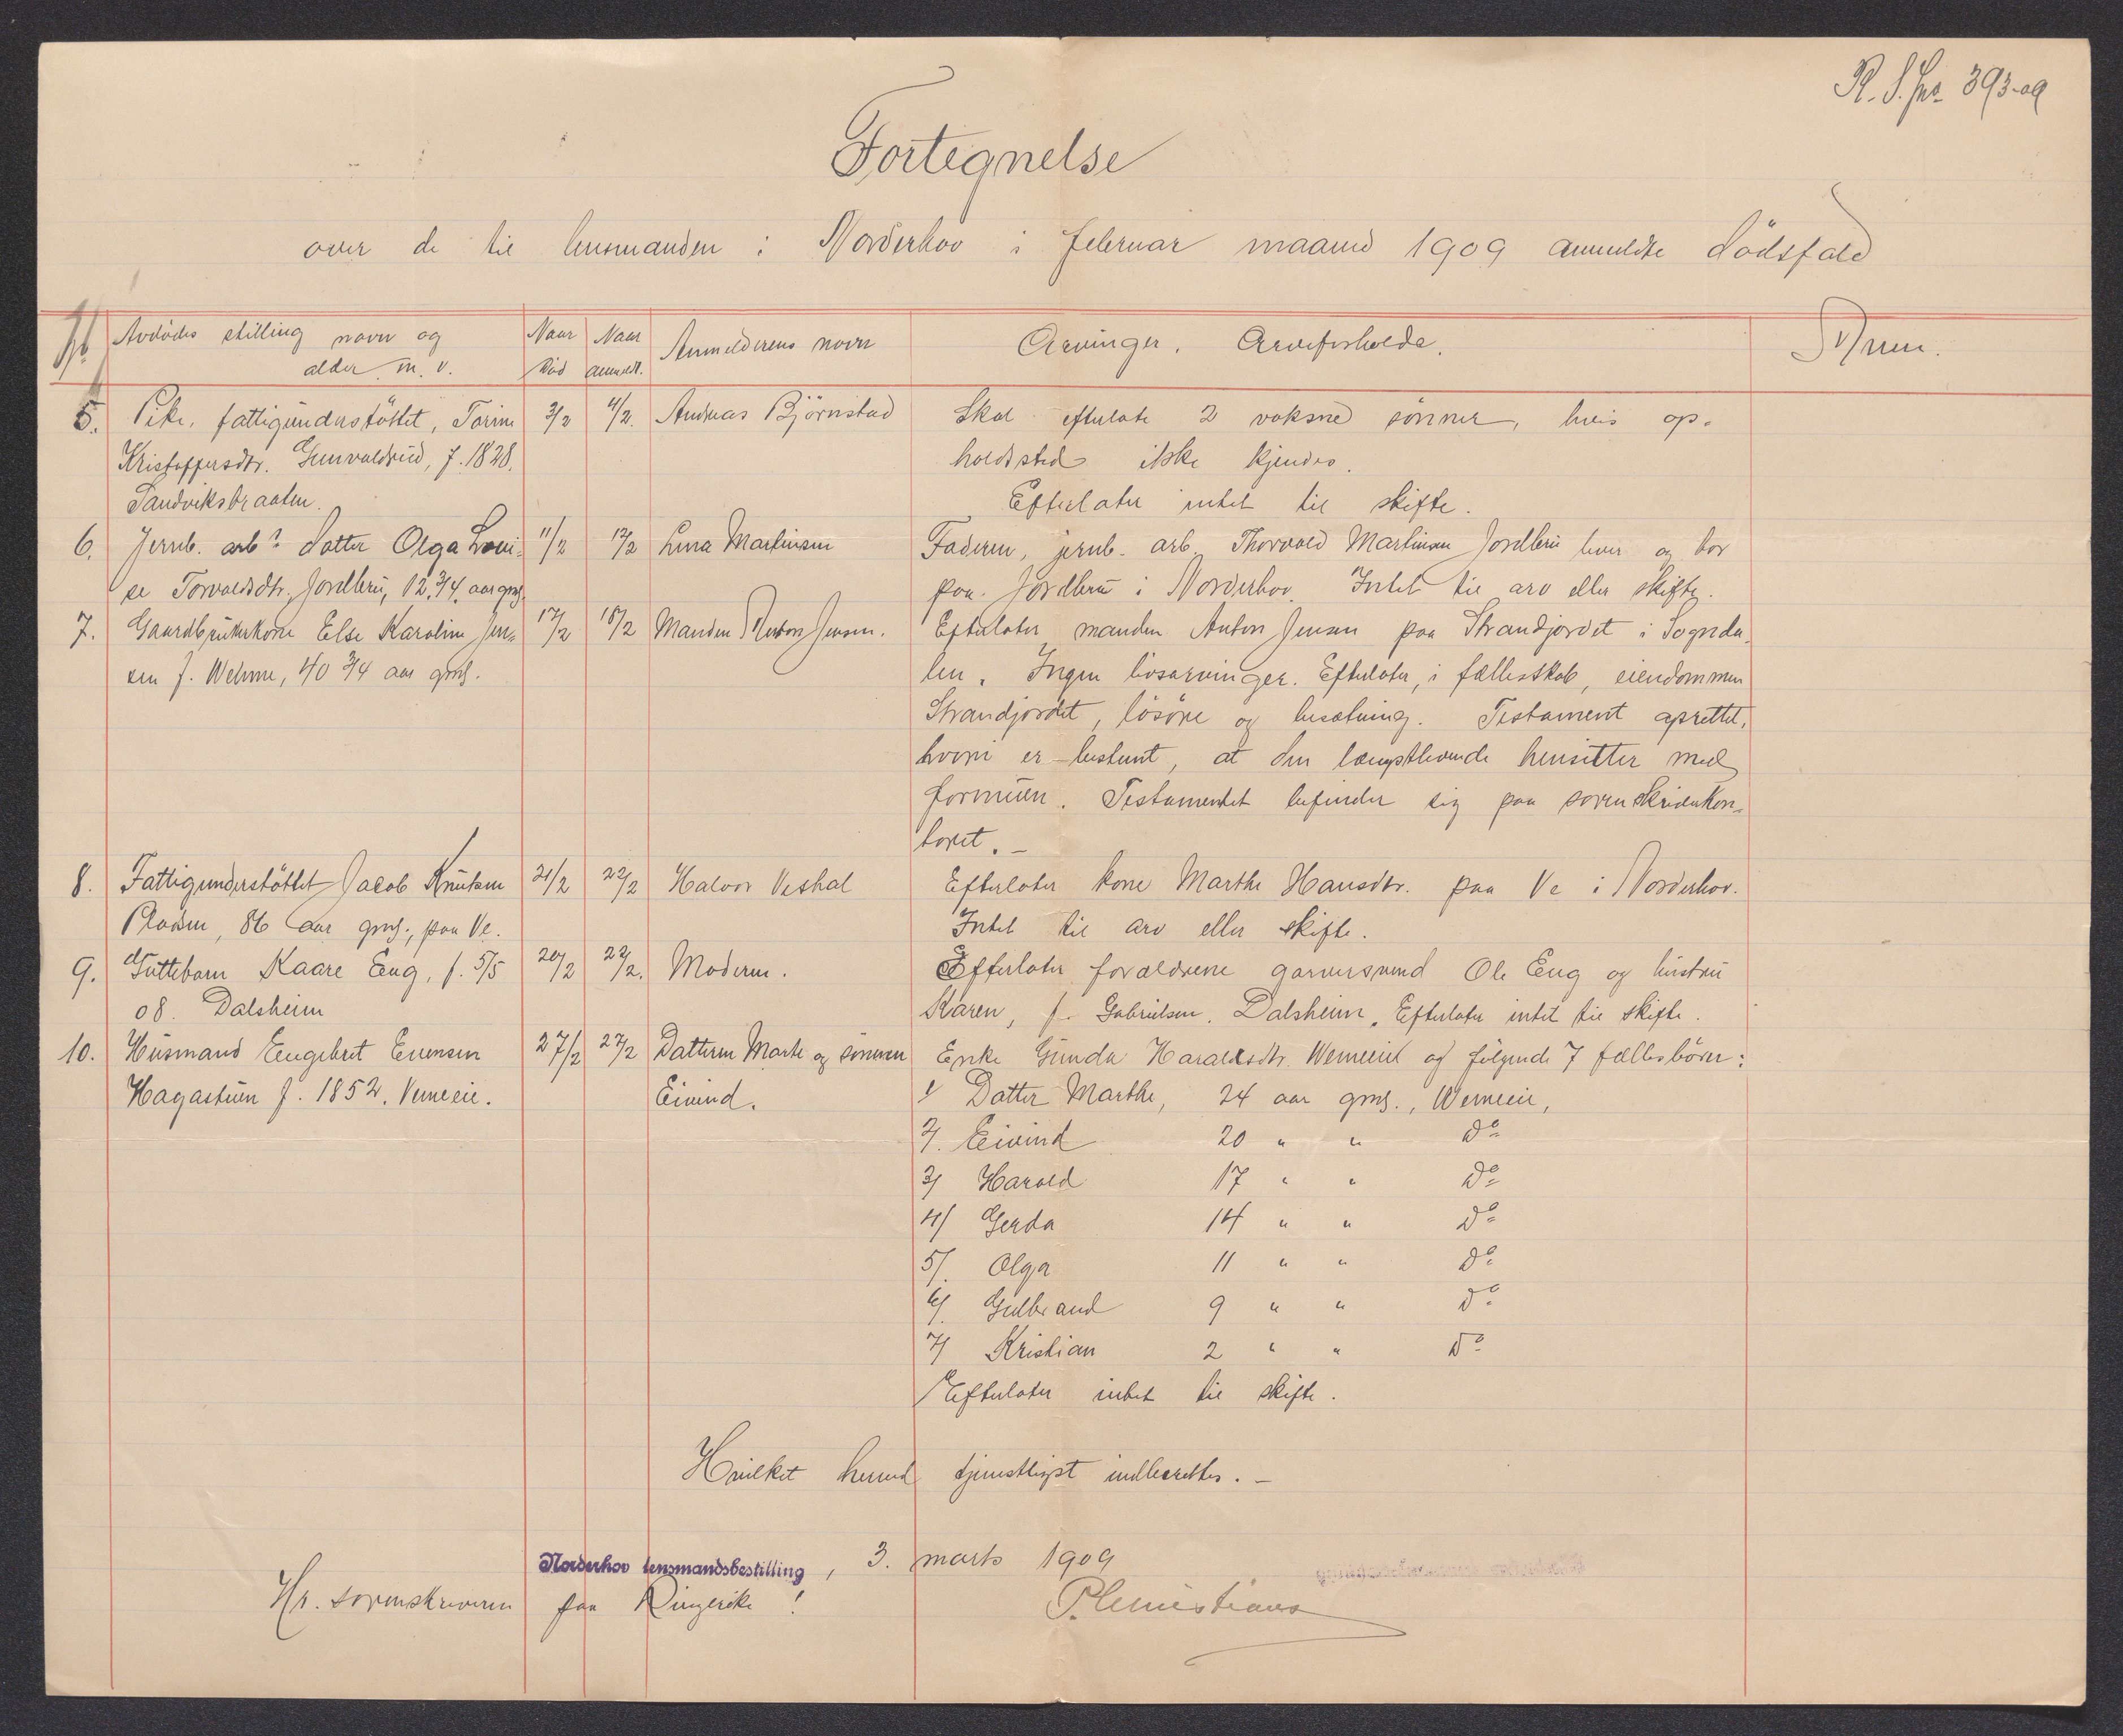 R. S. Jno. 393-09
Fortegnelse
over de til lensmanden i Norderhov i februar maaned 1909 anmeldte dödsfald
No. Avdödes stilling navn og alder m. v. Naar död Naar anmeldt. Anmelderens navn Arvinger. Arveforholde. Anm.
5. Pike, fattigunderstöttet, Torine 3/2 4/2. Andreas Björnstad Skal efterlate 2 voksne sönner, hvis op-
Kristoffersdtr. Gunvaldrud, f. 1828. holdssted ikke kjendes.
Sandviksbraaten. Efterlater intet til skifte.
6. Jernb. arb. datter Olga Loui- 11/2 12/2 Lina Martinsen Faderen, jernb. arb. Thorvald Martinsen Jordbru lever og bor
se Torvaldsdtr. Jordbru, 12 3/4 aar gml. paa Jordbru i Norderhov. Intet til arv eller skifte.
7. Gaardbrukerkone Else Karoline Jen- 17/2 18/2 Manden Anton Jensen. Efterlater manden Anton Jensen paa Strandjordet i Sognda-
sen f. Wehme, 40 3/4 aar gml. len. Ingen livsarvinger. Efterlater, i fællesskab, eiendommen
Strandjordet, lösöre og besætning. Testament oprettet,
hvori er bestemt, at den længstlevende hensitter med
formuen. Testamentet befinder sig paa sorenskriverkon-
toret. -
8. Fattigunderstöttet Jacob Knutsen 21/2 22/2 Halvor Veshal Efterlater kone Marthe Hansdtr. paa Ve i Norderhov.
Pladsen, 86 aar gml., paa Ve. Intet til arv eller skifte.
9. Guttebarn Kaare Eng, f. 5/5 20/2 22/2. Moderen. Efterlater forældrene garversvend Ole Eng og hustru
08. Dalsheim Karen, f. Gabrielsen, Dalsheim. Efterlater intet til skifte.
10. Husmand Engebret Evensen 27/2 27/2 Datteren Marte og sönnen Enke Gunda Haraldsdtr. Wemeeie og fölgende 7 fællesbörn:
Hagastuen f. 1852. Vemeeie. Eivind. 1/ Datter Marthe, 24 aar gml., Wemeeie,
2/. Eivind 20 " " do
3/ Harald 17 " " do
4/ Gerda 14 " " do
5/. Olga 11 " " do
6/. Gulbrand 9 " " do
7/ Kristian 2 " " do
Efterlater intet til skifte.
Hvilket herved tjenstligst indberettes. -
Norderhov lensmandsbestilling, 3. marts 1909
Hr. sorenskriveren paa Ringerike!